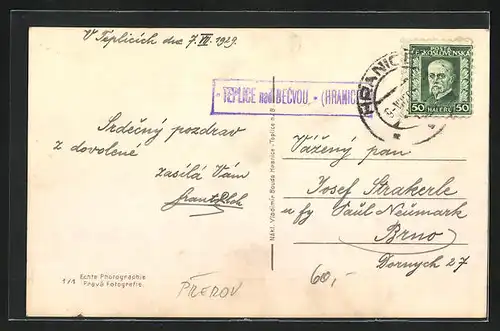 V Teplicích dne 7. VII. 1929.
TEPLICE nad BEČVOU • (HRANIC
HRANIC
POŠTA
ČESKOSLOVENSKÁ
50 50
HALÉŘŮ
Srdečný pozdrav
z dovolené
zasílá Vám
Vážený pan
Josef Strakerle
u fy Paul Neumark
Brno
Dornych 27
Nákl. Vladimír Bouda Hranice - Teplice n. B.
Echte Photographie
Pravá Fotografie.
1/1
PŘEROV
60,-